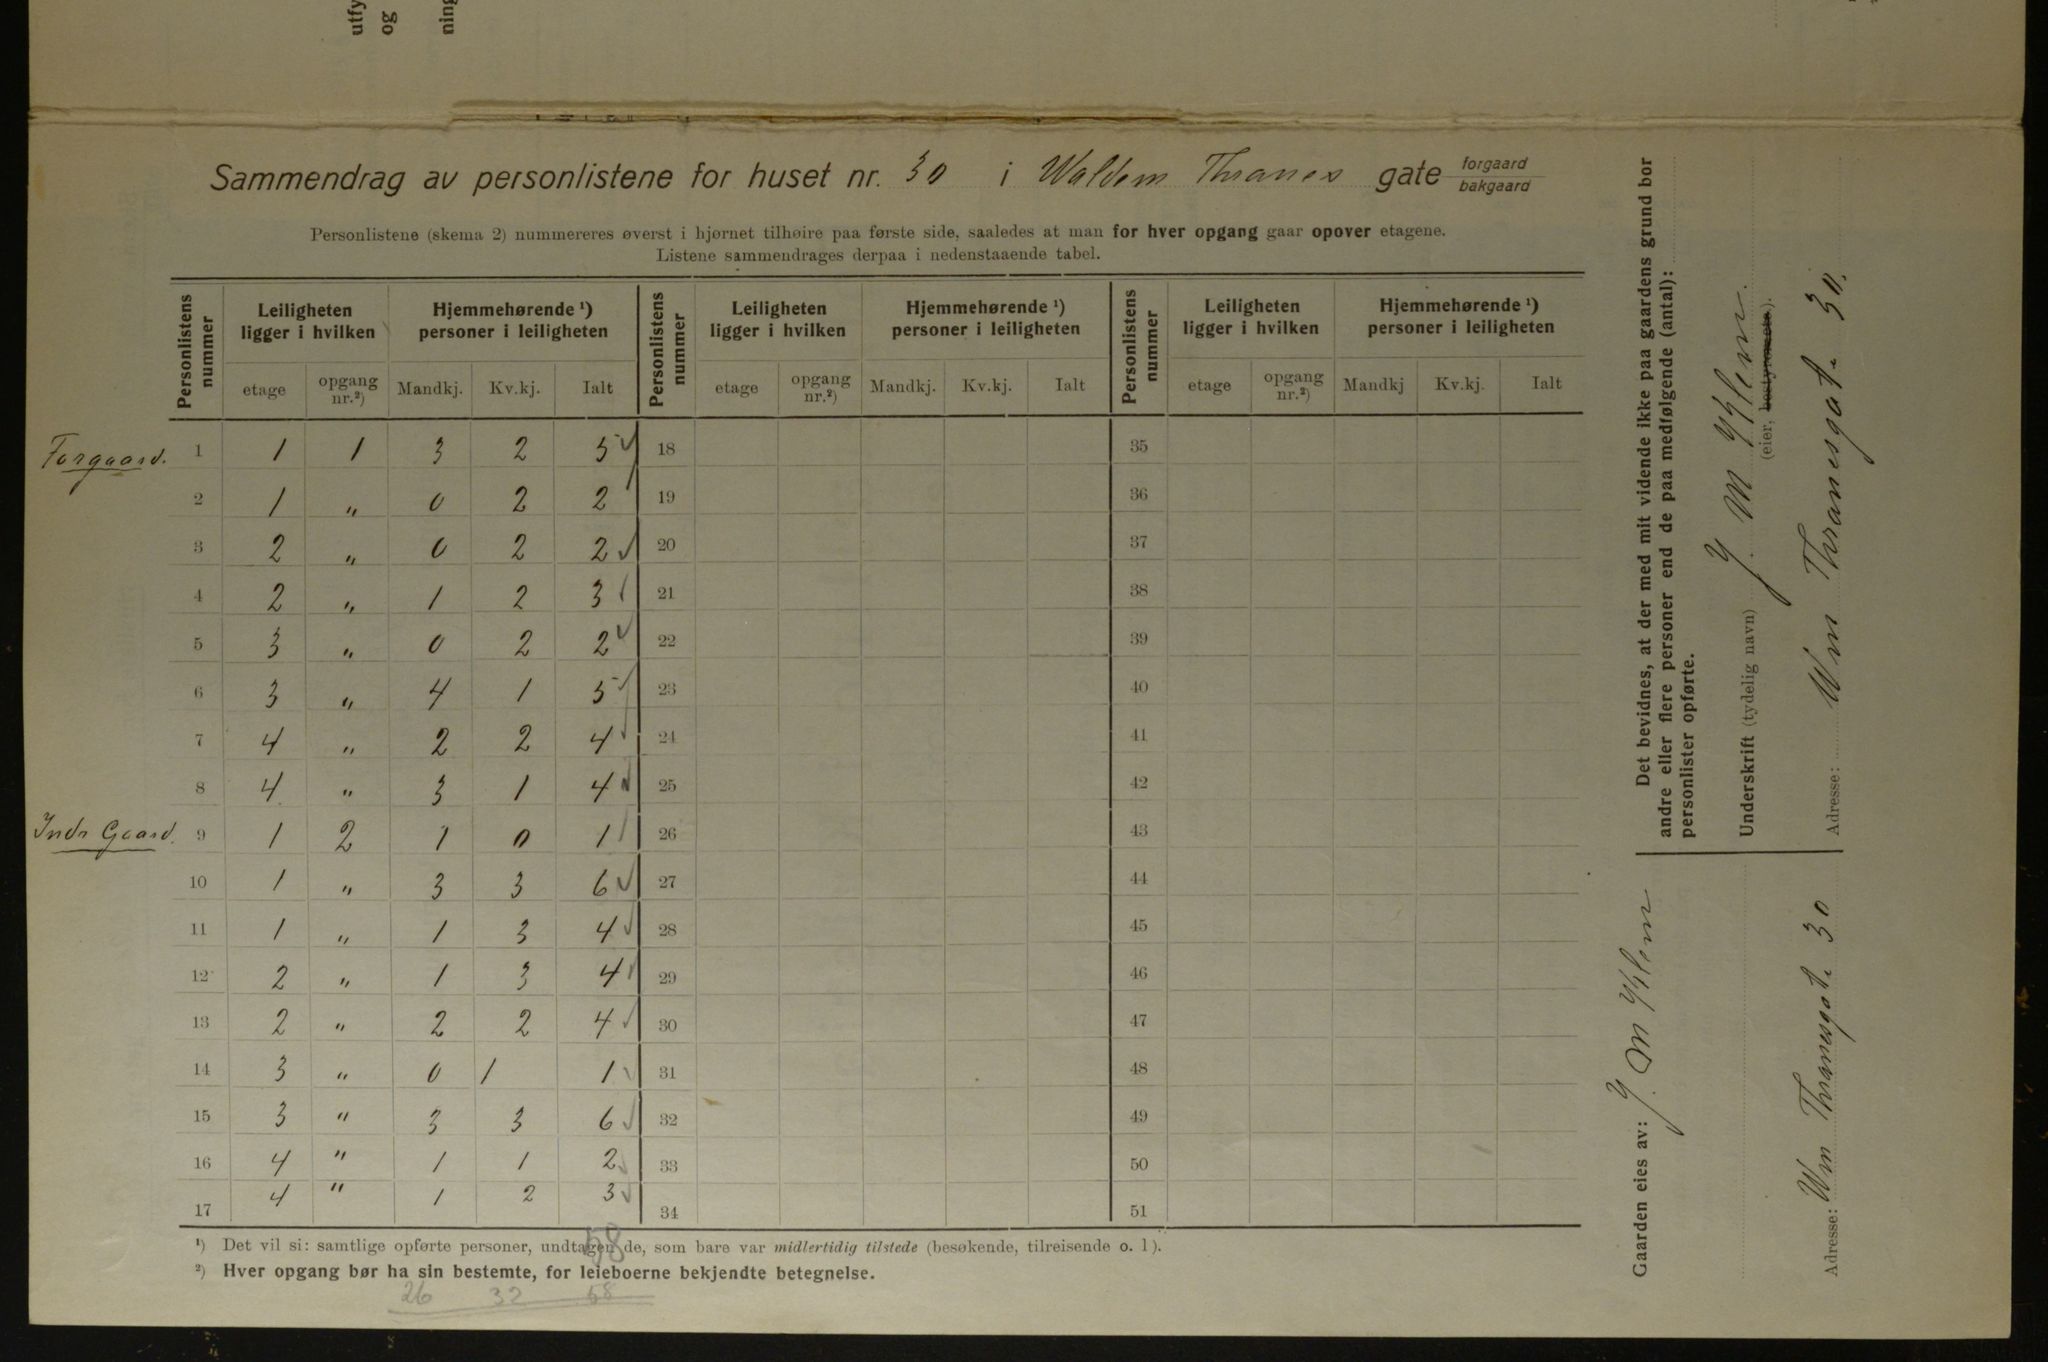 utfy
og
ning
Sammendrag av personlistene for huset nr. 30 i Waldem Thranes gate forgaard bakgaard
Personlistene (skema 2) nummereres øverst i hjørnet tilhøire paa første side, saaledes at man for hver opgang gaar opover etagene.
Listene sammendrages derpaa i nedenstaaende tabel.
Personlistens nummer Leiligheten ligger i hvilken Hjemmehørende ¹) personer i leiligheten Personlistens nummer Leiligheten ligger i hvilken Hjemmehørende ¹) personer i leiligheten Personlistens nummer Leiligheten ligger i hvilken Hjemmehørende ¹) personer i leiligheten
etage opgang nr.²) Mandkj. Kv.kj. Ialt etage opgang nr.²) Mandkj. Kv.kj. Ialt etage opgang nr.²) Mandkj Kv.kj. Ialt
Forgaard. 1 1 1 3 2 5 18 35
2 1 " 0 2 2 19 36
3 2 " 0 2 2 20 37
4 2 " 1 2 3 21 38
5 3 " 0 2 2 22 39
6 3 " 4 1 5 23 40
7 4 " 2 2 4 24 41
8 4 " 3 1 4 25 42
Indr Gaard. 9 1 2 1 0 1 26 43
10 1 " 3 3 6 27 44
11 1 " 1 3 4 28 45
12 2 " 1 3 4 29 46
13 2 " 2 2 4 30 47
14 3 " 0 1 1 31 48
15 3 " 3 3 6 32 49
16 4 " 1 1 2 33 50
17 4 " 1 2 3 34 51
58
¹) Det vil si: samtlige opførte personer, undtagen de, som bare var midlertidig tilstede (besøkende, tilreisende o. l).
²) Hver opgang bør ha sin bestemte, for leieboerne bekjendte betegnelse.
26 32 58
Det bevidnes, at der med mit vidende ikke paa gaardens grund bor
andre eller flere personer end de paa medfølgende (antal):
personlister opførte.
Underskrift (tydelig navn) J. M
(eier, bestyrer etc).
Adresse: Wm Thranesgat. 30.
Gaarden eies av: J. M
Adresse: Wm Thranesgat. 30